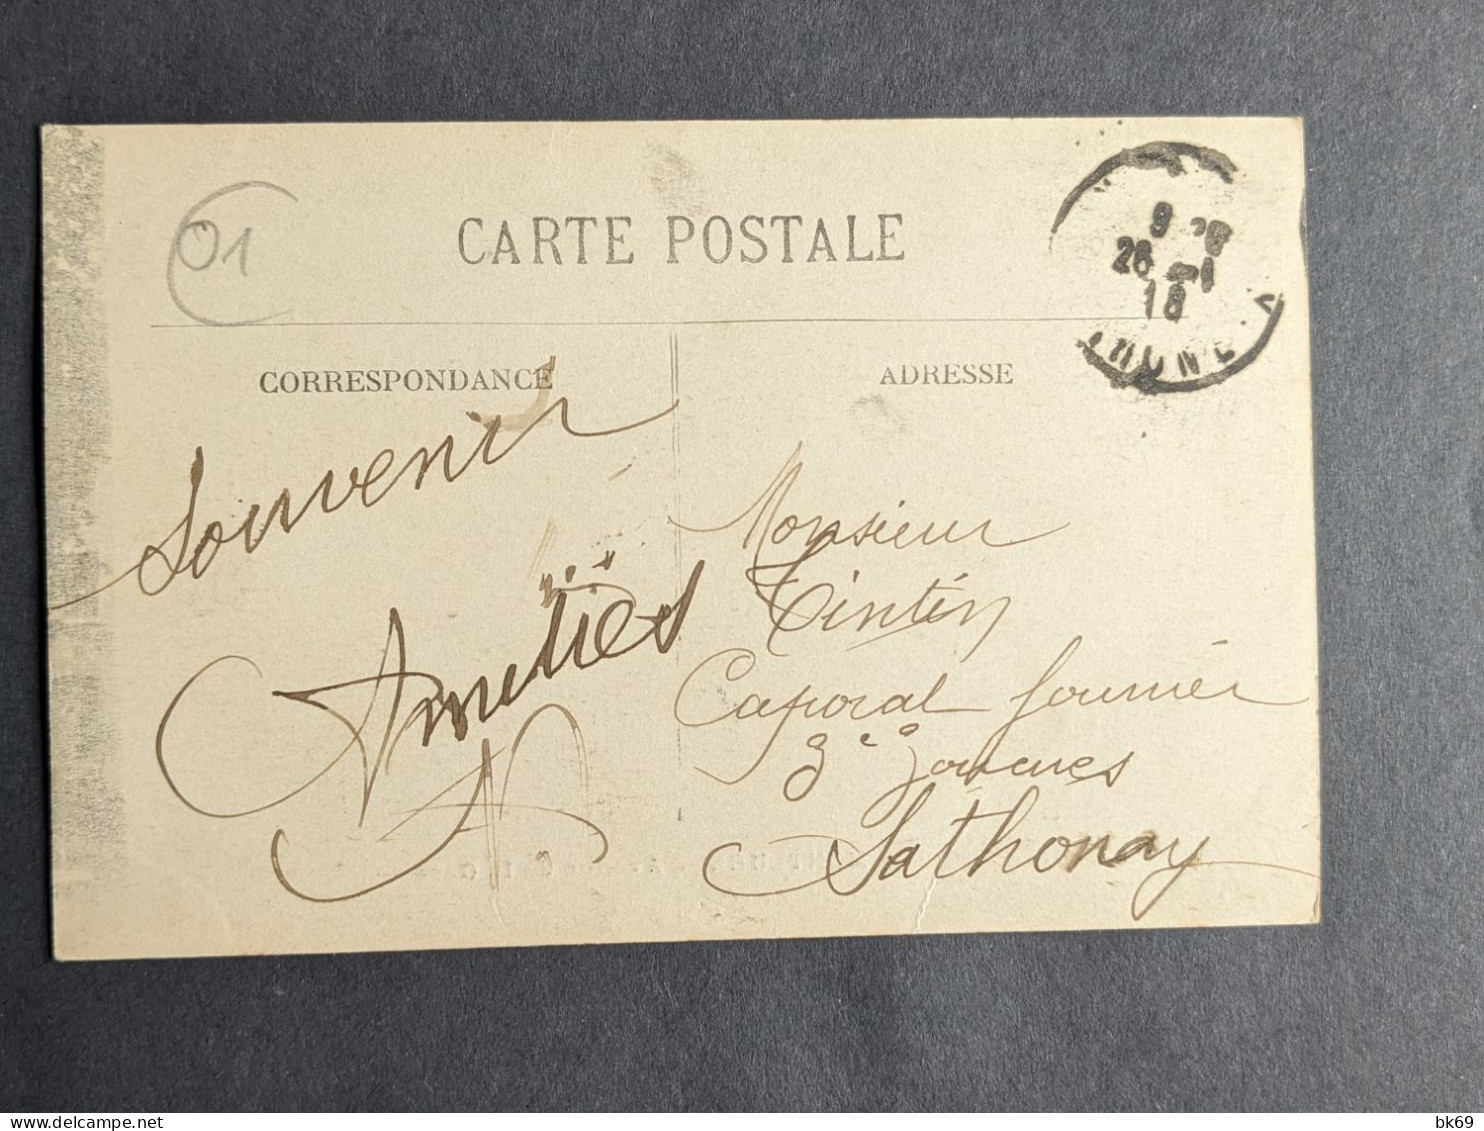 01
CARTE POSTALE
CORRESPONDANCE
ADRESSE
9
26
18
RHONE
Souvenir
Amitiés
Monsieur
Tintin
Caporal fourrier
3e Zouaves
Sathonay
delcampe.net
bk69